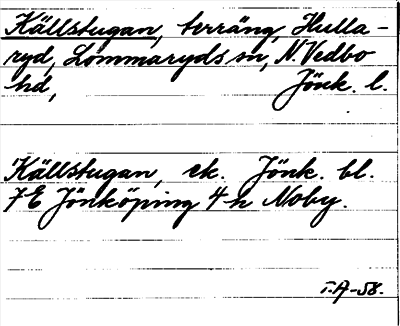 Källstugan, terräng, Hulla-
ryd, Lommaryds sn, N. Vedbo
hd, Jönk. l.
Källstugan, ek. Jönk. bl.
7E Jönköping 4h Noby.
T.A-58.